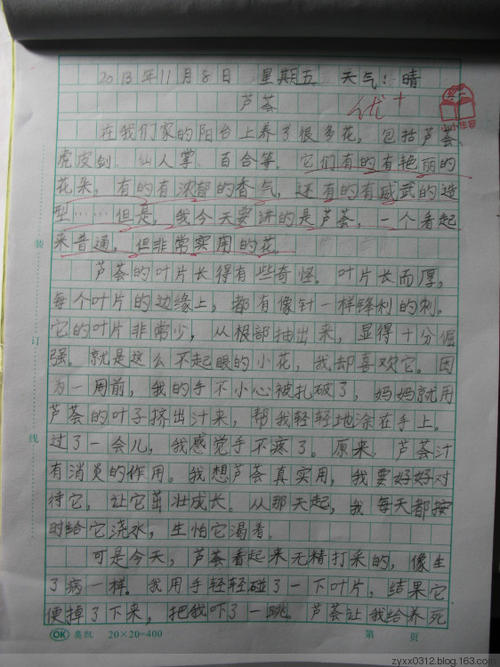 2013年11月8日 星期五 天气:晴
芦荟 优+
在我们家的阳台上养了很多花,包括芦荟、
虎皮剑、仙人掌、百合等。它们有的有艳丽的
花朵,有的有浓郁的香气,还有的有威武的造
型……但是,我今天要讲的是芦荟,一个看起
来普通,但非常实用的花。
芦荟的叶片长得有些奇怪。叶片长而厚,
每个叶片的边缘上,都有像针一样锋利的刺。
它的叶片非常少,从根部抽出来,显得十分倔
强。就是这么不起眼的小花,我却喜欢它。因
为一周前,我的手不小心被扎破了,妈妈就用
芦荟的叶子挤出汁来,帮我轻轻地涂在手上。
过了一会儿,我感觉手不疼了。原来,芦荟汁
有消炎的作用。我想芦荟真实用,我要好好对
待它,让它茁壮成长。从那天起,我每天都按
时给它浇水,生怕它渴着。
可是今天,芦荟看起来无精打采的,像生
了病一样。我用手轻轻碰了一下叶片,结果它
便掉了下来,把我吓了一跳。芦荟让我给养死
装
订
线
OK 奥凯 20×20=400 第 页
zyxx0312.blog.163.com